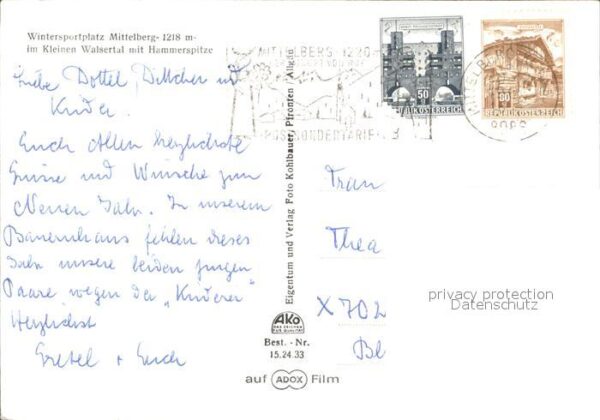 Wintersportplatz Mittelberg-1218 m-
im Kleinen Walsertal mit Hammerspitze
Liebe Dottel, Dittchen und
Kinder.
Euch Allen herzlichste
Grüsse und Wünsche zum
Neuen Jahr. In unserem
Bauernhaus fehlen dieses
Jahr unsere beiden jungen
Paare, wegen der „Kinderer"
Herzlichst
Gretel + Euch
MITTELBERG 1220
POSTSONDERTARIF
50
REPUBLIK ÖSTERREICH
80
REPUBLIK ÖSTERREICH
MITTELBERG
Eigentum und Verlag Foto Kohlbauer, Pfronten / Allgäu
Frau
Thea
X 702
Bl
privacy protection
Datenschutz
AKO
DAS ZEICHEN
FÜR QUALITÄT
Best. - Nr.
15.24.33
auf ADOX Film